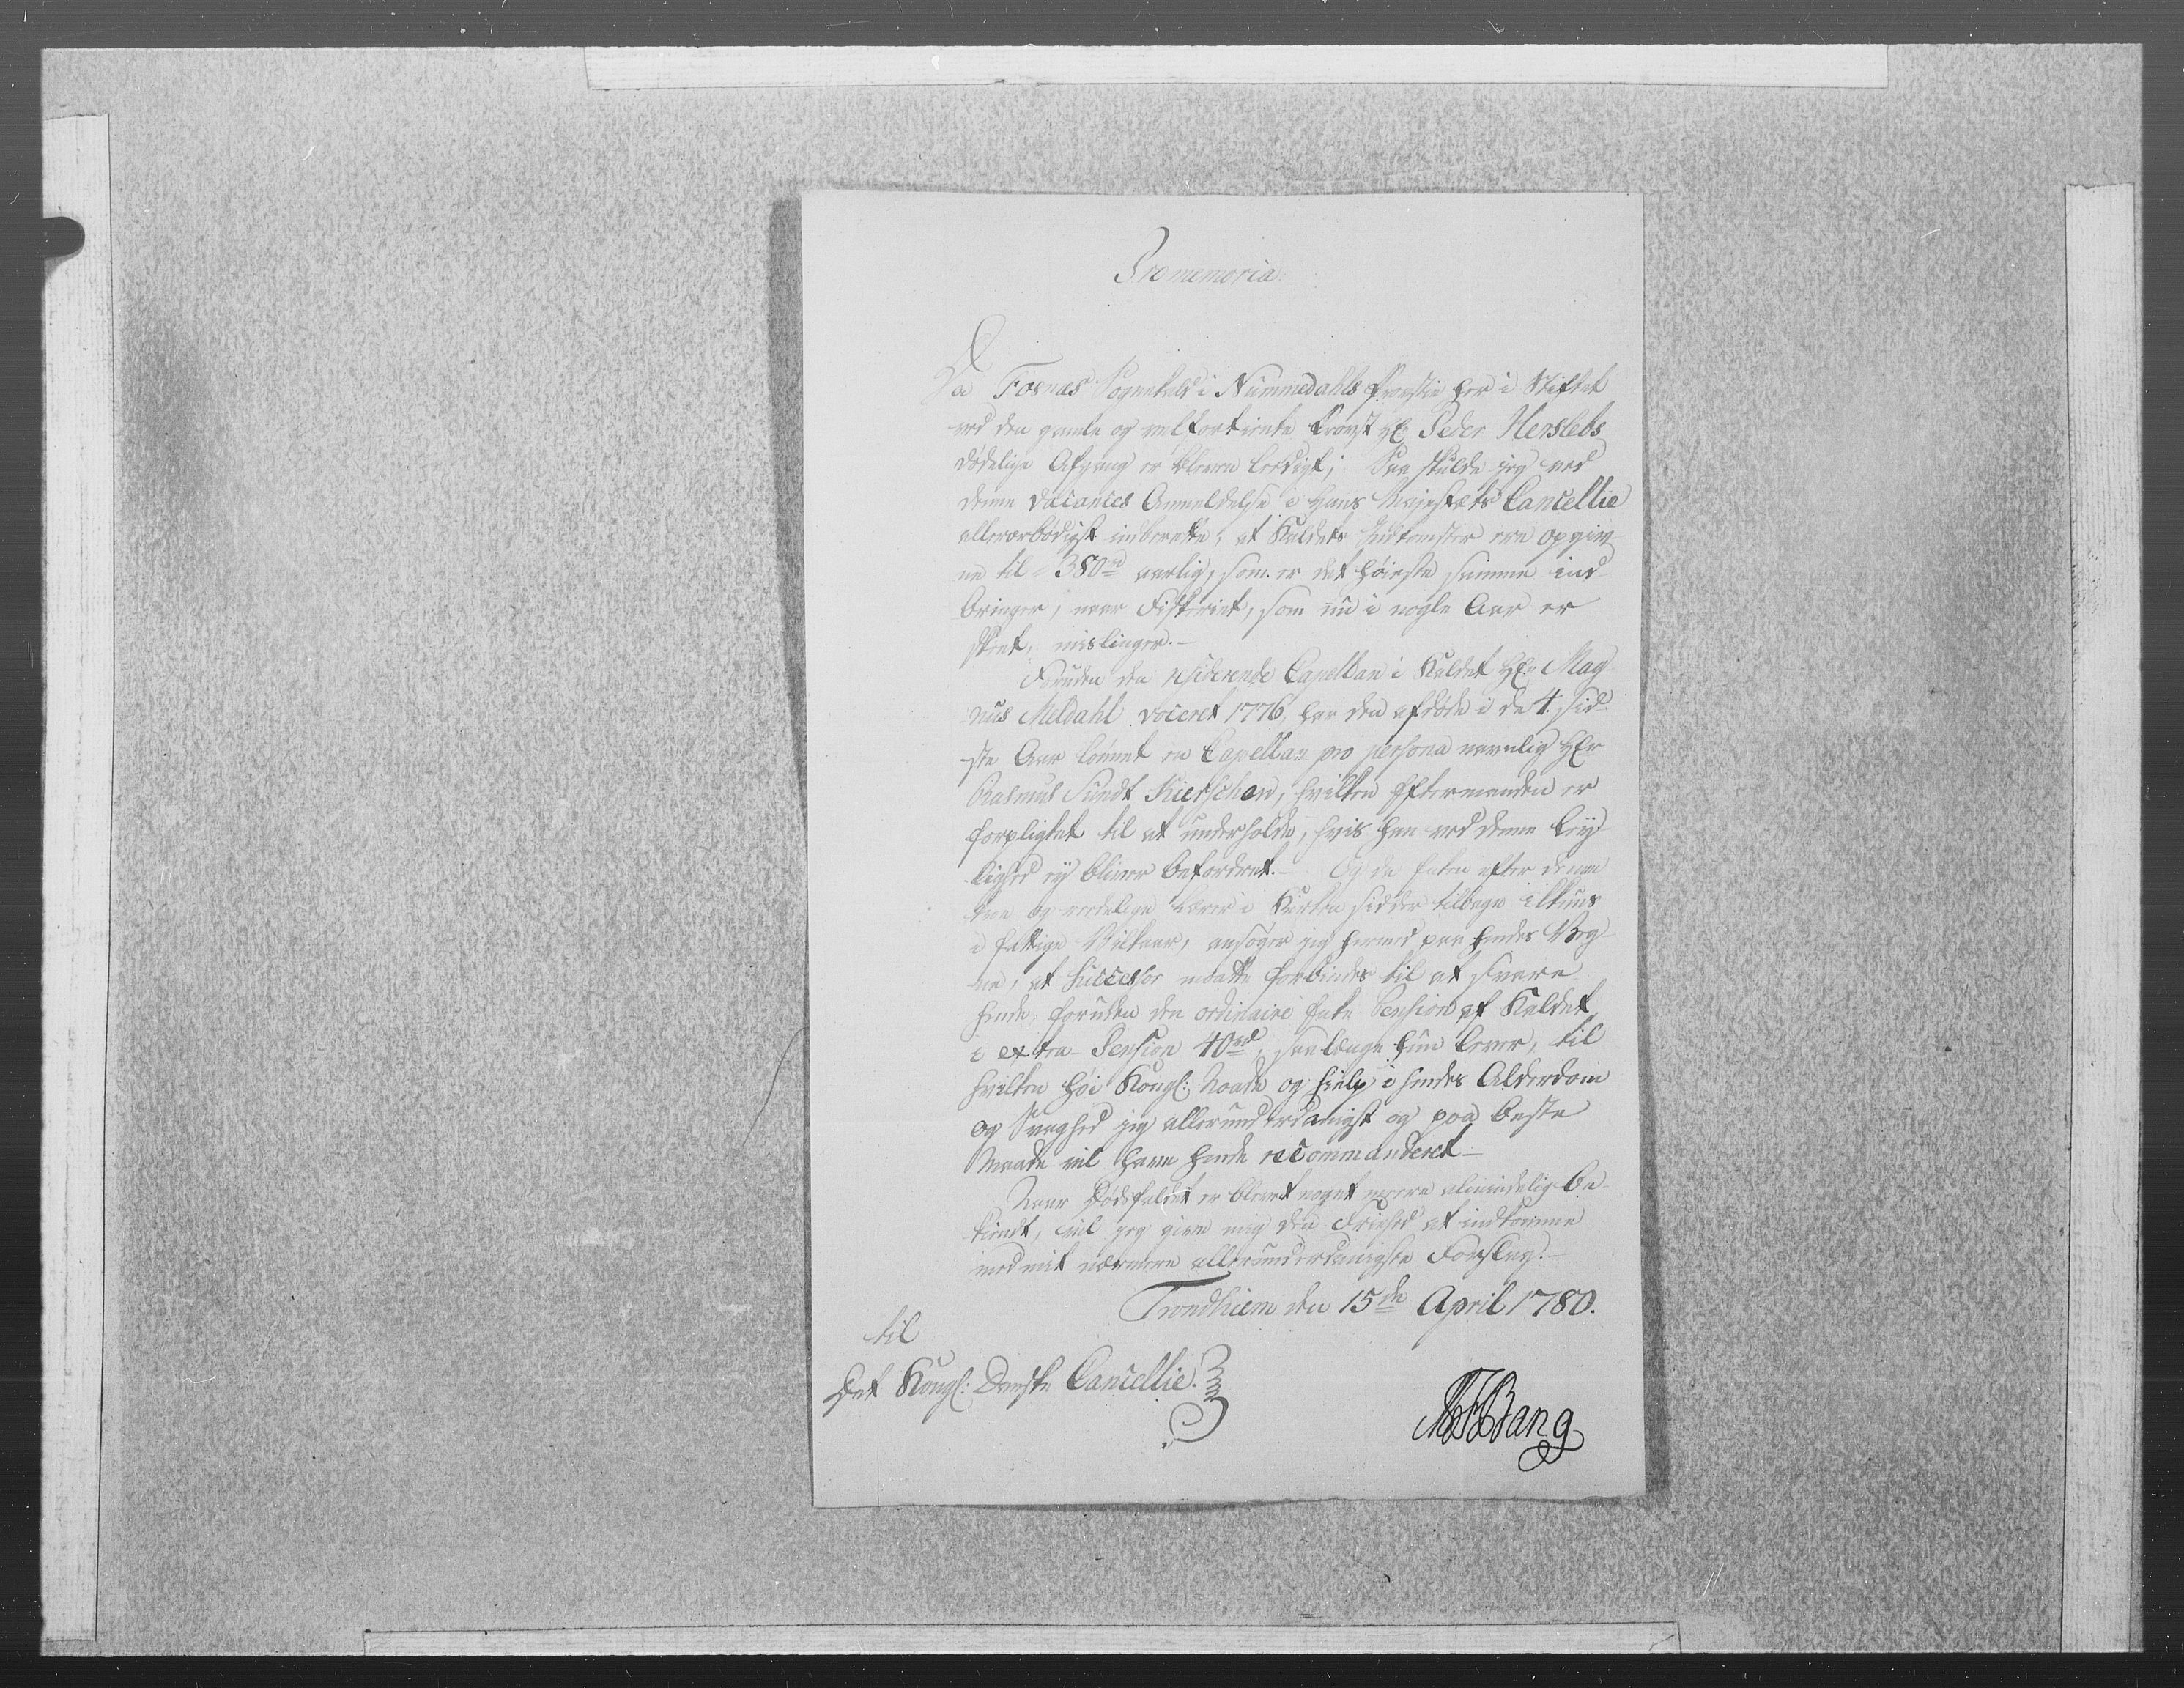 Promemoria.
Da Foenæs Sognekald i Nummedahls Provstie her i Stiftet
ved den gamle og velfortiente Provst Hr Peder Herslebs
dødelige Afgang er bleven leedigt; Saa skulde jeg ved
denne vacances Anmeldelse i Hans Majestets Cancellie
allerærbødigst indberette, at Kaldets Indkomster ere opgiv-
ne til 380rd aarlig, som er det høieste samme ind-
bringer, naar Fiskeriet, som nu i nogle Aar er
skeet, mislinger.-
Foruden den residerende Capellan i Kaldet Hr Mag-
nus Meldahl voceret 1776, har den afdøde i de 4 sid-
ste Aar lønnet en Capellan pro persona navnlig Hr
Rasmus Sundt Kierschow, hvilken Eftermanden er
forpligtet til at underholde, hvis han ved denne Ley-
lighed ey bliver befordret.- Og da Enken efter denne
troe og redelige Lærer i Kirken sidder tilbage
i fattige Vilkaar, ansøger jeg hermed paa hendes Veg-
ne, at Successor maatte forbindes til at svare
hende foruden den ordinaire Enke Pension af Kaldet
i extra- Pension 40rd, saalænge hun lever, til
hvilken høi Kongl: Naade og hielp i hendes Alderdom
og Svaghed jeg allerunderdanigst og paa beste
Maade vil have hende recommanderet-
Naar Dødsfaldet er blevet noget meere almindelig be-
kiendt, vil jeg give mig den Friehed at indkomme
med mit nærmere allerunderdanigste Forslag.-
Trondhiem den 15de April 1780.
til
Det Kongl: Danske Cancellie.
MFBang